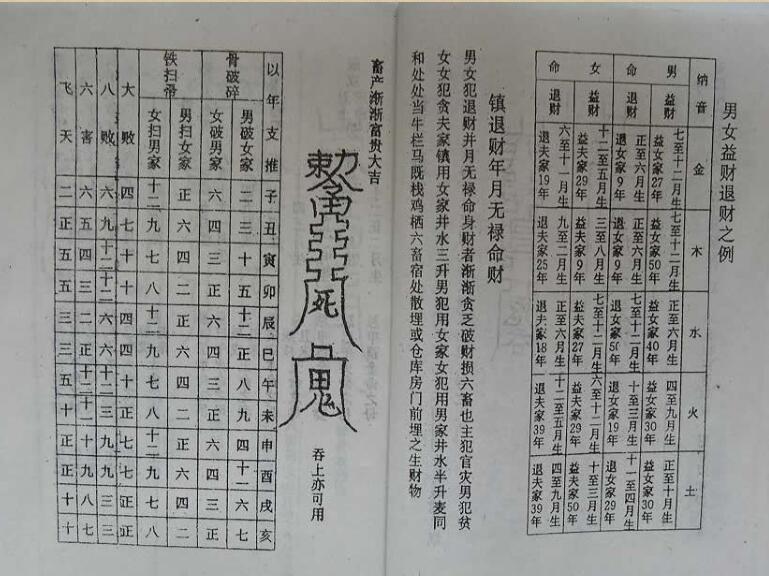 男女益财退财之例
纳音 金 木 水 火 土
男命
益财 七至十二月生益女家27年 七至十二月生益女家50年 正至六月生益女家40年 四至九月生益女家30年 正至十月生益女家30年
退财 正至六月生退女家9年 正至六月生退女家9年 七至十二月生退女家50年 十至三月生退女家19年 十一至四月生退女家29年
女命
益财 十二至五月生益夫家29年 三至八月生益夫家9年 七至十二月生益夫家27年 六至十一月生益夫家29年 十至三月生益夫家50年
退财 六至十一月生退夫家19年 九至二月生退夫家25年 正至六月生退夫家18年 十二至五月生退夫家39年 四至九月生退夫家39年
镇退财年月无禄命财
男女犯退财并月无禄命身财者渐渐贫乏破财损六畜也主犯官灾男犯贫
女女犯贪夫家镇用女家井水三升男犯用女家女犯用男家井水半升麦同
和处处当牛栏马既栈鸡栖六畜宿处散埋或仓库房门前埋之生财物
畜产渐渐富贵大吉
死
鬼
吞上亦可用
以年支推 子 丑 寅 卯 辰 巳 午 未 申 酉 戌 亥
骨破碎
男破女家 二 三 十 五 十二 正 八 九 四 十一 六 七
女破男家 六 四 三 正 六 四 三 正 六 四 三 正
铁扫帚
男扫女家 正 六 四 二 正 六 四 二 正 六 四 二
女扫男家 十二 九 七 八 十二 九 七 八 十二 九 七 八
大败 四 七 十 十 四 四 十 正 七 七 正 正
八败 六 九 十二 十二 六 六 十二 三 九 九 三 三
六害 六 五 四 三 二 正 十二 十一 十 九 八 七
飞天 二 正 五 五 三 三 五 十 正 正 十 十